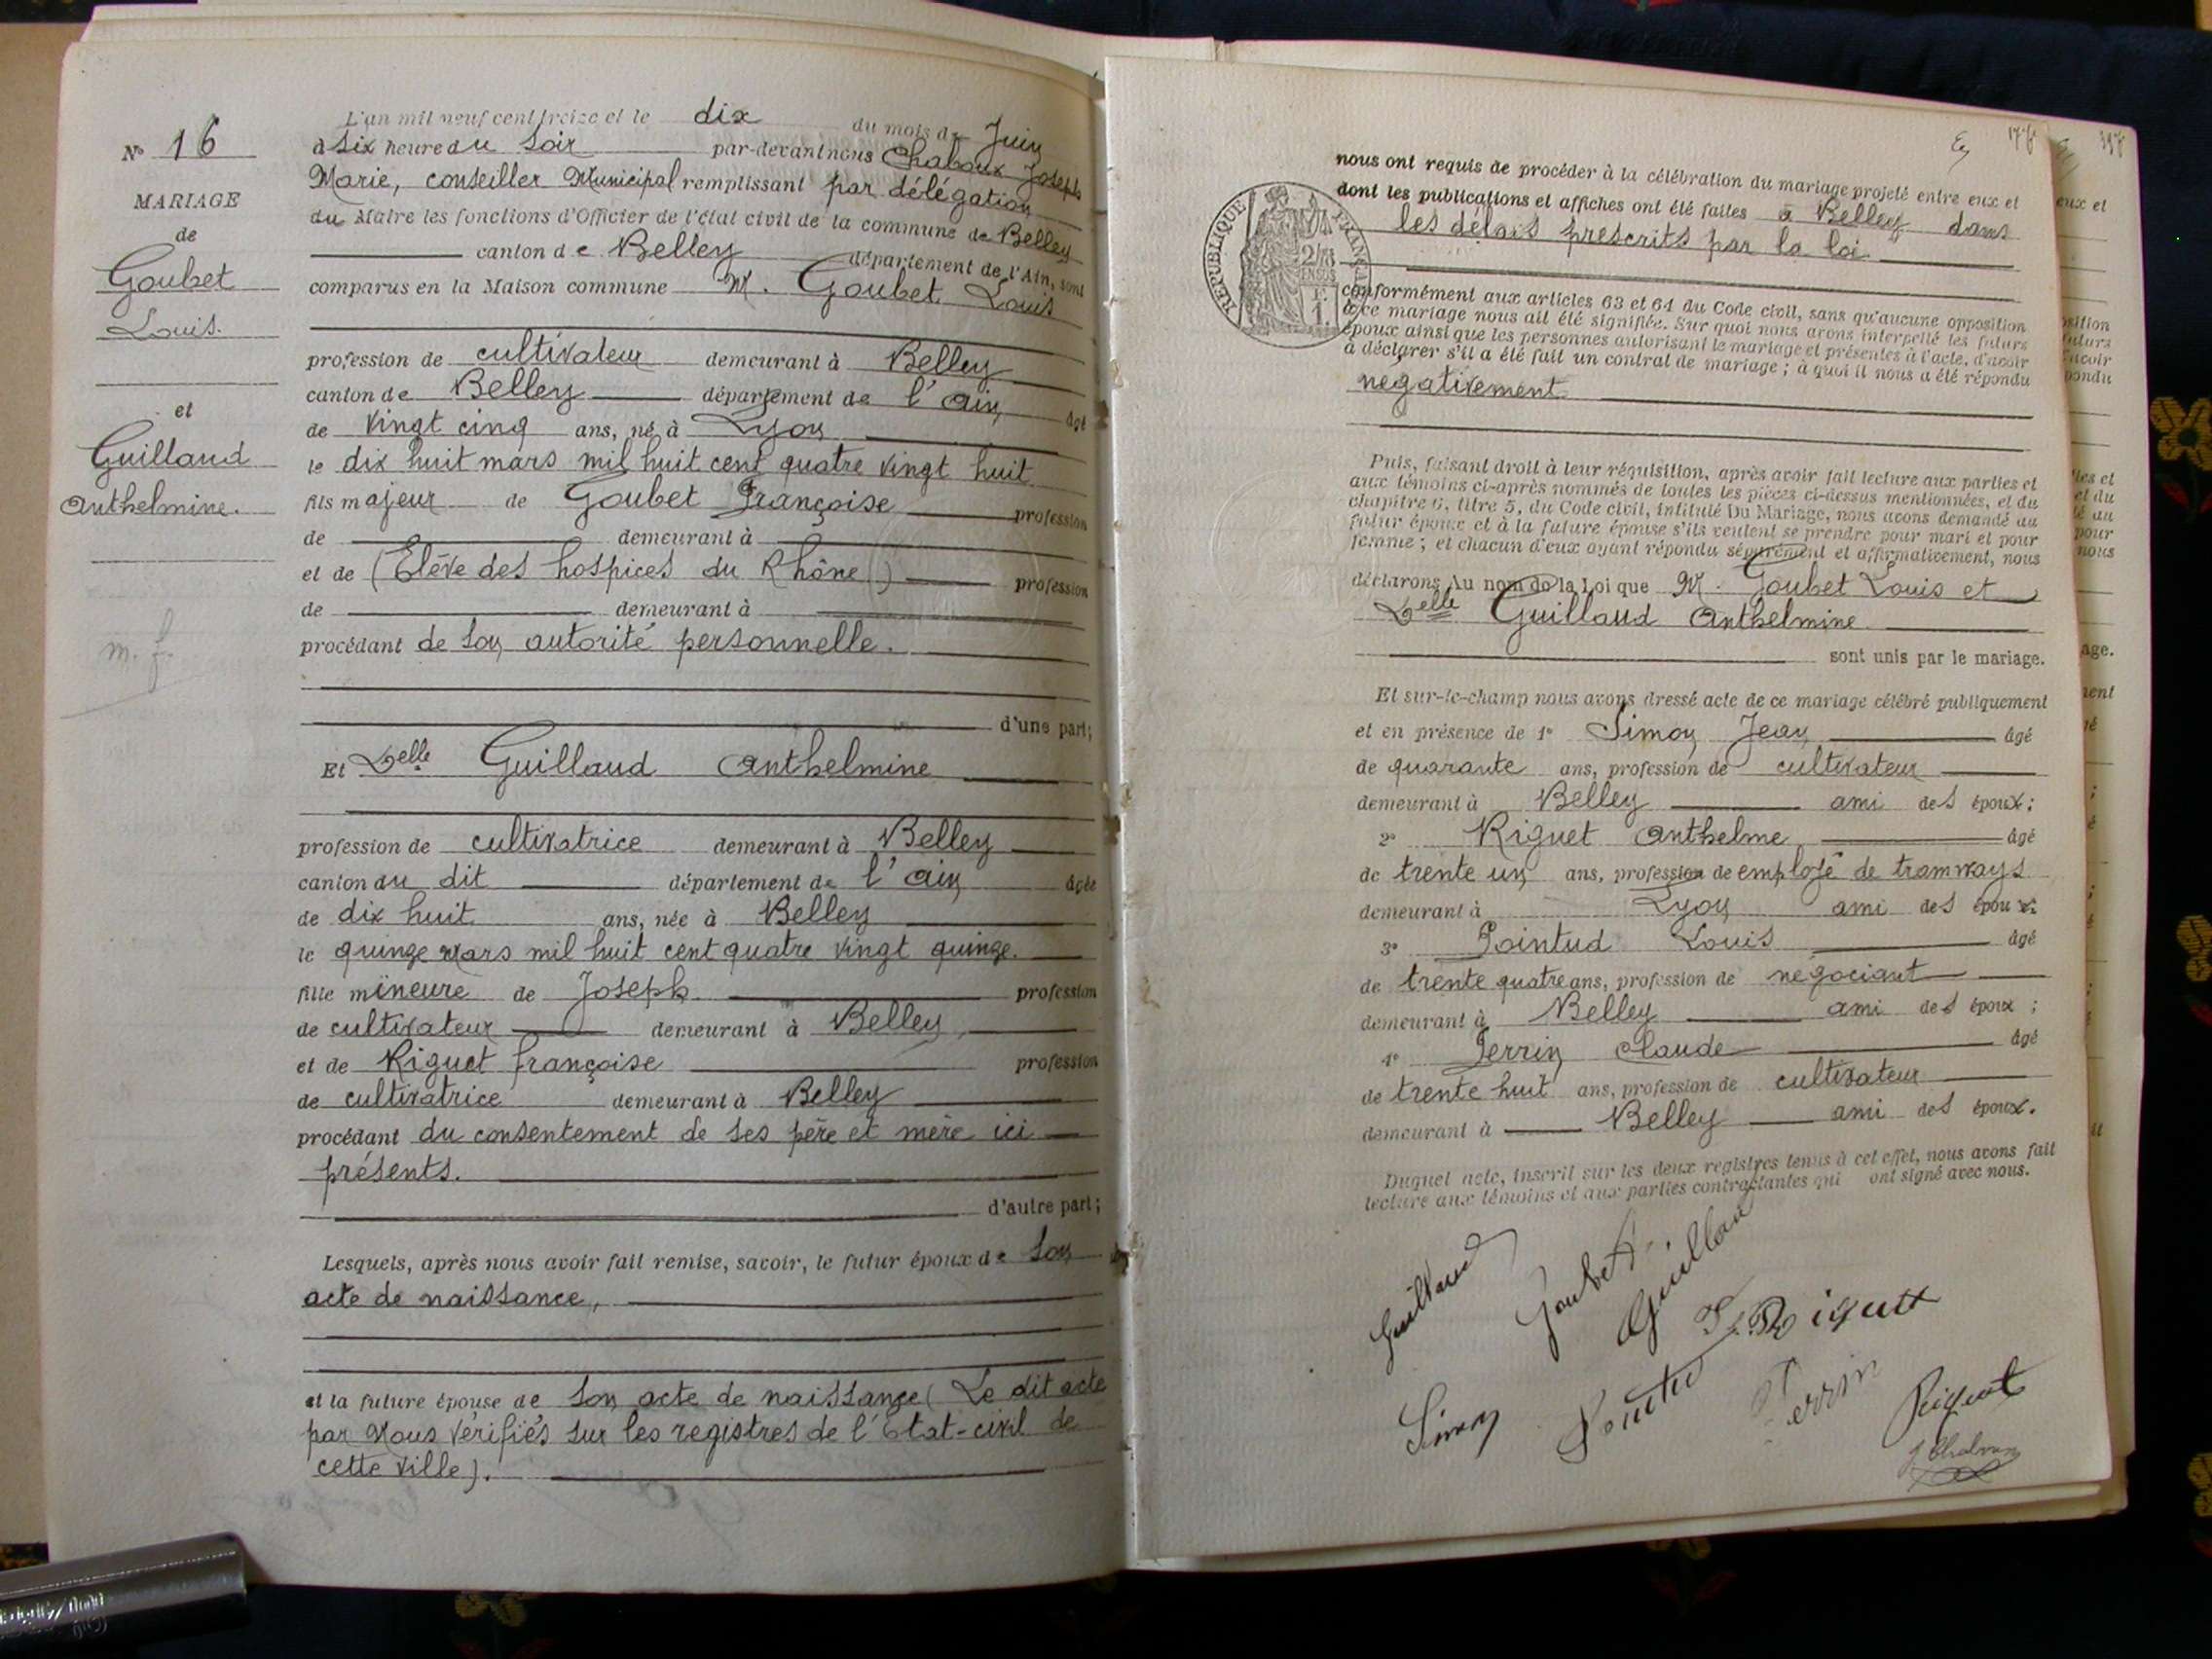 N° 16
MARIAGE
de
Goubet
Louis.
et
Guilland
Anthelmine.
m. f.
L'an mil neuf cent treize et le dix du mois de Juin
à six heure du soir par-devant nous Chaboux Joseph
Marie, conseiller Municipal remplissant par délégation
du Maire les fonctions d'Officier de l'état civil de la commune de Belley
canton de Belley département de l'Ain, sont
comparus en la Maison commune M. Goubet Louis
profession de cultivateur demeurant à Belley
canton de Belley département de l'Ain âgé
de vingt cinq ans, né à Lyon
le dix huit mars mil huit cent quatre vingt huit
fils majeur de Goubet Françoise profession
de demeurant à
et de (Elève des hospices du Rhône) profession
de demeurant à
procédant de son autorité personnelle.
d'une part;
Et Delle Guilland Anthelmine
profession de cultivatrice demeurant à Belley
canton du dit département de l'Ain âgée
de dix huit ans, née à Belley
le quinze Mars mil huit cent quatre vingt quinze.
fille mineure de Joseph profession
de cultivateur demeurant à Belley,
et de Riguet françoise profession
de cultivatrice demeurant à Belley
procédant du consentement de ses père et mère ici
présents.
d'autre part;
Lesquels, après nous avoir fait remise, savoir, le futur époux de son
acte de naissance,
et la future épouse de son acte de naissance (Le dit acte
par Nous vérifiés sur les registres de l'Etat-civil de
cette ville).
RÉPUBLIQUE FRANÇAISE
nous ont requis de procéder à la célébration du mariage projeté entre eux et
dont les publications et affiches ont été faites à Belley dans
les délais prescrits par la loi
conformément aux articles 63 et 64 du Code civil, sans qu'aucune opposition
à ce mariage nous ait été signifiée. Sur quoi nous avons interpellé les futurs
époux ainsi que les personnes autorisant le mariage et présentes à l'acte, d'avoir
à déclarer s'il a été fait un contrat de mariage; à quoi il nous a été répondu
négativement
Puis, faisant droit à leur réquisition, après avoir fait lecture aux parties et
aux témoins ci-après nommés de toutes les pièces ci-dessus mentionnées, et du
chapitre 6, titre 5, du Code civil, intitulé Du Mariage, nous avons demandé au
futur époux et à la future épouse s'ils veulent se prendre pour mari et pour
femme; et chacun d'eux ayant répondu séparément et affirmativement, nous
déclarons Au nom de la Loi que M. Goubet Louis et
Delle Guilland Anthelmine
sont unis par le mariage.
Et sur-le-champ nous avons dressé acte de ce mariage célébré publiquement
et en présence de 1° Simon Jean âgé
de quarante ans, profession de cultivateur
demeurant à Belley ami des époux;
2° Riguet Anthelme âgé
de trente un ans, profession de employé de tramways
demeurant à Lyon ami des époux;
3° Pointud Louis âgé
de trente quatre ans, profession de négociant
demeurant à Belley ami des époux;
4° Perrin Claude âgé
de trente huit ans, profession de cultivateur
demeurant à Belley ami des époux.
Duquel acte, inscrit sur les deux registres tenus à cet effet, nous avons fait
lecture aux témoins et aux parties contractantes qui ont signé avec nous.
Guilland Goubet A. Guilland
F. Riguet
Simon Pointud Perrin Riguet